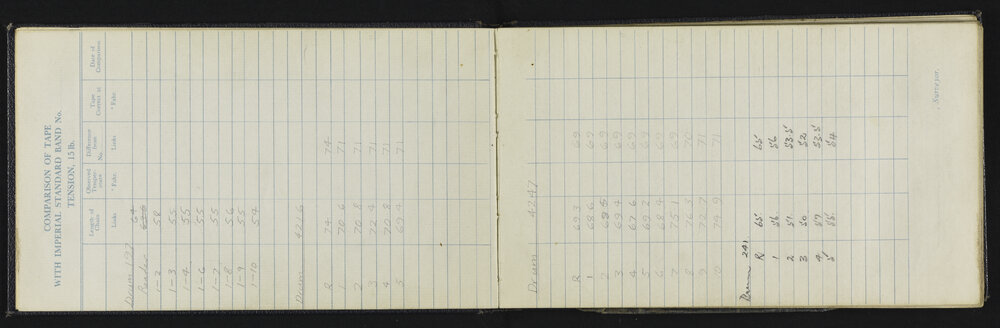 COMPARISON OF TAPE
WITH IMPERIAL STANDARD BAND No.
TENSION, 15 lb.
Length of Chain Observed Temperature Difference from No. Tape Correct at Date of Comparison
Links ° Fahr. Links ° Fahr.
Drum 197 64
1-2 58
1-3 55
1-4 55
1-6 55
1-7 55
1-8 56
1-9 55
1-10 54
Drum 4216
R 74 74
1 70 6 71
2 70 8 71
3 72 4 71
4 70 8 71
5 69 4 71
Drum 4247
R 69 3 69
1 68 6 69
2 69
3 69 4 69
4 67 6 69
5 69 2 69
6 68 4 69
7 75 1 69
8 76 5 70
9 72 7 71
10 74 9 71
Drum 241
R 65 65
1 56 56
2 51 53.5
3 50 52
4 57 53.5
5 55 54
Surveyor.